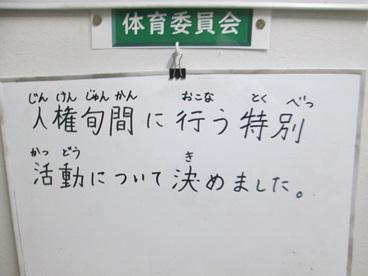 体育委員会
じんけんじゅんかん おこな とくべつ
人権旬間に行う特別
かつどう き
活動について決めました。